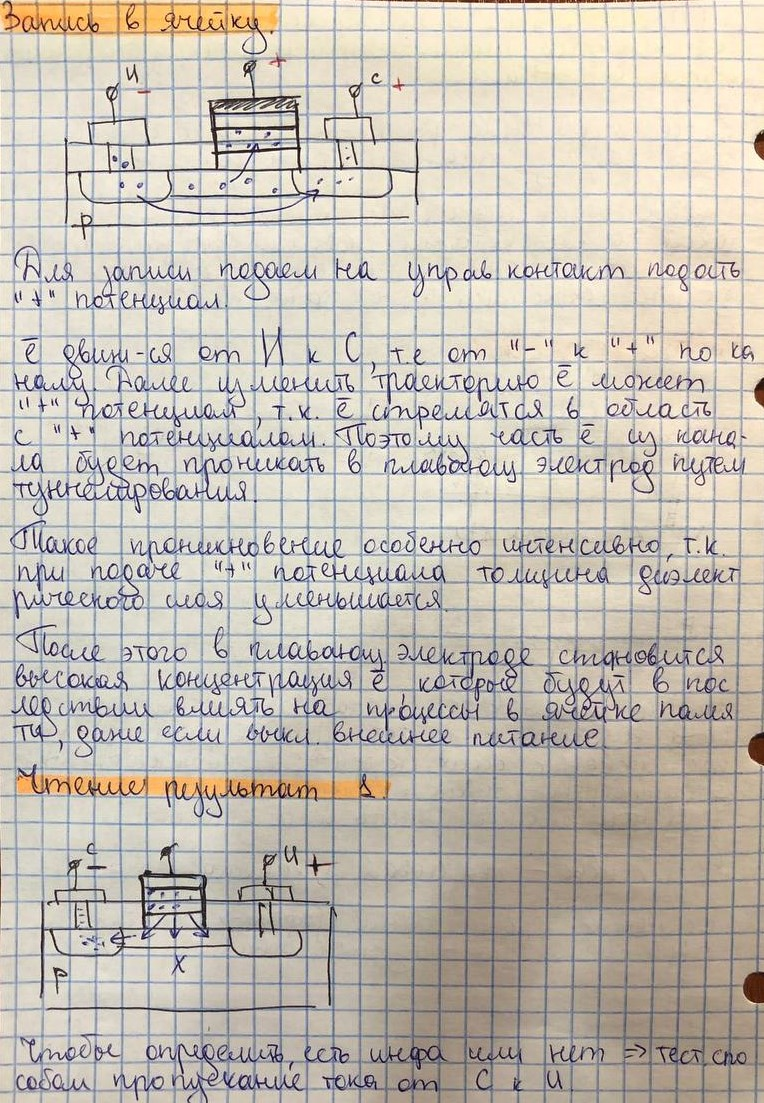 Запись в ячейку.
И
-
+
С
+
р
Для записи подаем на управ контакт подать
"+" потенциал.
ē движ-ся от И к С, т.е от "-" к "+" по ка
налу. Далее изменить траекторию ē может
"+" потенциал, т.к. ē стремятся в область
с "+" потенциалом. Поэтому часть ē из кана-
ла будет проникать в плавающ электрод путем
туннелирования.
Такое проникновение особенно интенсивно, т.к.
при подаче "+" потенциала толщина диэлект
рического слоя уменьшается.
После этого в плавающ электроде становится
высокая концентрация ē, которые будут в пос
ледствии влиять на процессы в ячейке памя
ти, даже если выкл. внешнее питание
Чтение результат 1.
С
-
И
+
р
х
Чтобы определить, есть инфа или нет => тест. спо
собом пропускание тока от С к И